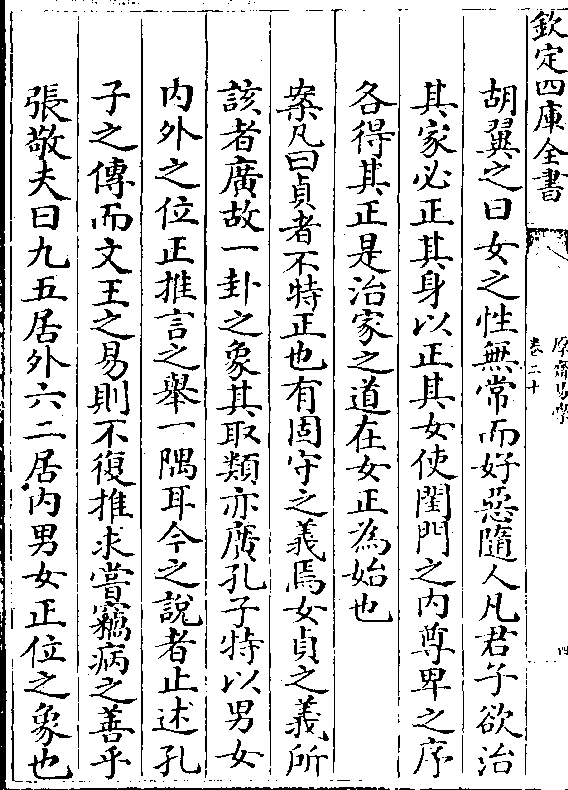 欽定四庫全書
厚齋易學
卷二十
四
胡翼之曰女之性無常而好惡隨人凡君子欲治
其家必正其身以正其女使閨門之内尊卑之序
各得其正是治家之道在女正為始也
案凡曰貞者不特正也有固守之義焉女貞之義所
該者廣故一卦之象其取類亦廣孔子特以男女
内外之位正推言之舉一隅耳今之說者止述孔
子之傳而文王之易則不復推求嘗竊病之善乎
張敬夫曰九五居外六二居内男女正位之象也